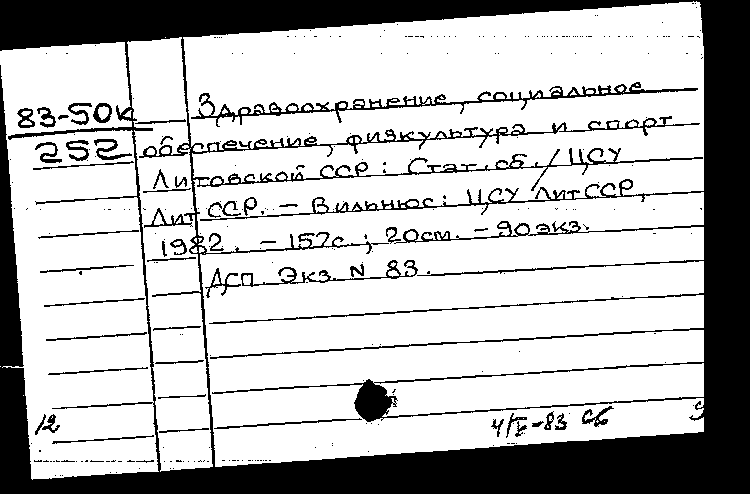 83-50к
252
Здравоохранение, социальное
обеспечение, физкультура и спорт
Литовской ССР: Стат. сб. / ЦСУ
Лит ССР. - Вильнюс: ЦСУ ЛитССР,
1982. - 157с.; 20см. - 90экз.
Дсп. Экз. N 83.
12